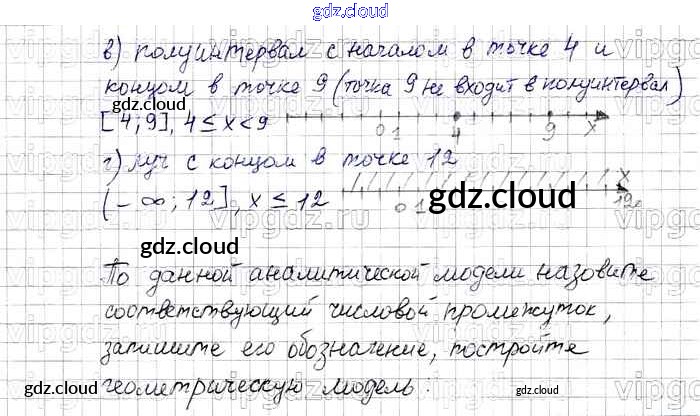 gdz.cloud
в) полуинтервал с началом в точке 4 и
концом в точке 9 (точка 9 не входит в полуинтервал)
gdz.cloud
[4; 9], 4 ≤ x < 9
0 1 4 9 x
г) луч с концом в точке 12
(-∞; 12], x ≤ 12
0 1 12 x
gdz.cloud
gdz.cloud
По данной аналитической модели назовите
соответствующий числовой промежуток,
запишите его обозначение, постройте
геометрическую модель:
gdz.cloud
gdz.cloud